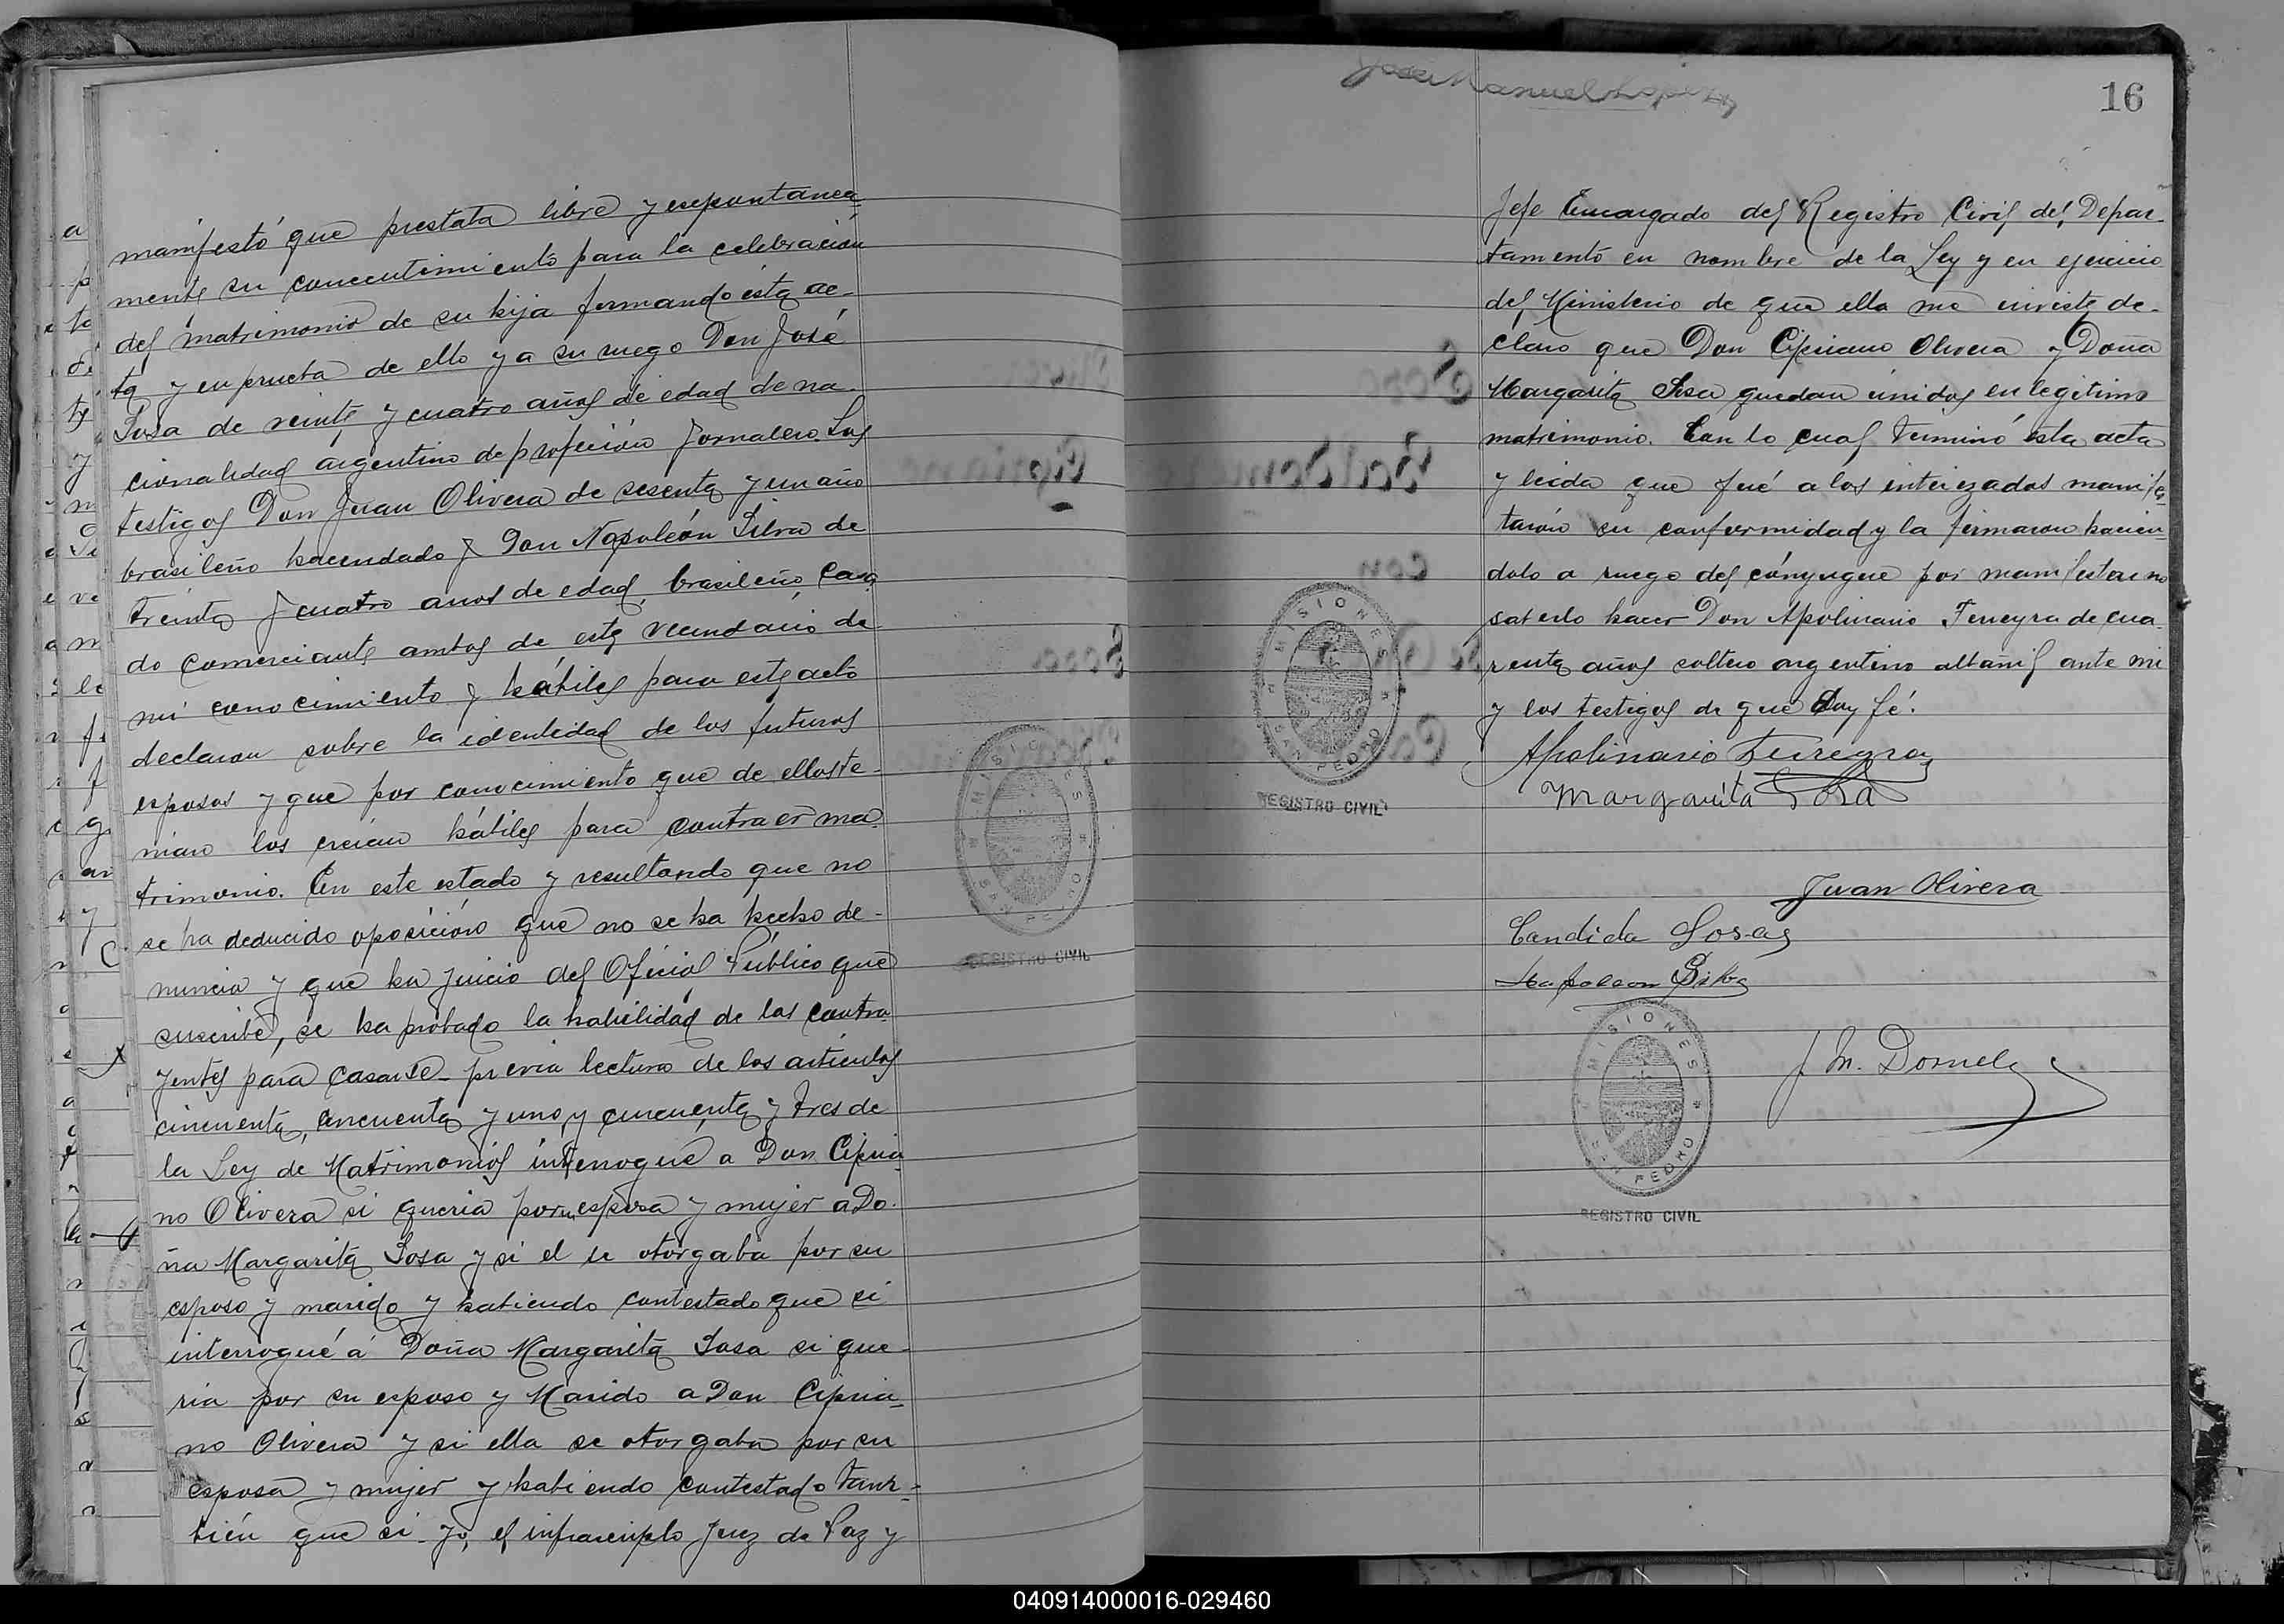 manifestó que prestata libre y esepontanea
mente su consentimiento para la celebración
del matrimonio de su hija firmando ésta ac-
ta y en prueta de ello y a su ruego Don José
Sosa de veinte y cuatro años de edad de na-
cionalidad argentino de profeción Jornalero. Los
testigos Don Juan Olivera de sesenta y un año
brasileño hacendado y Don Napoleón Silva de
treinta y cuatro anos de edad, brasileño, casa
do comerciante ambos de este vecindario de
mi conocimiento y hábiles para este acto
declaran sobre la identidad de los futuros
esposos y que por conocimiento que de ellos te-
nian los creian hábiles para contraer ma-
trimonio. En este estado y resultando que no
se ha deducido oposición que no se ha hecho de-
nuncia y que ha juicio del Oficial Público que
suscribe, se ha probado la habilidad de los contra
yentes para casarse previa lectura de los artículos
cincuenta, cincuenta y uno y cincuenta y tres de
la Ley de Matrimonios interrogué a Don Cipria-
no Olivera si queria por su esposa y mujer a Do-
ña Margarita Sosa y si el se otorgaba por su
esposo y marido y habiendo contestado que si
interrogué á Doña Margarita Sosa si que-
ria por su esposo y Marido a Don Cipria-
no Olivera y si ella se otorgaba por su
esposa y mujer y habiendo contestado tam-
bién que si. Yo, el infrascripto Juez de Paz y
MISIONES
SAN PEDRO
REGISTRO CIVIL
José Manuel Lopez
16
Jefe Encargado del Registro Civil del Depar-
tamento en nombre de la Ley y en ejercicio
del Ministerio de que ella me inviste de-
claro que Don Cipriano Olivera y Doña
Margarita Sosa quedan unidos en legitimo
matrimonio. Con lo cual terminó esta acta
y leida que fué a los interezados manifes-
tarón su conformidad y la firmaron hacien-
dolo a ruego del cónyugue por manifestar no
saterlo hacer Don Apolinario Ferreyra de cua-
renta años soltero argentino albañil ante mi
y los testigos de que doy fé.
Apolinario Ferreyra
Margarita Sosa
Juan Olivera
Candida Sosa
Napoleon Silva
J. M. Dornel
MISIONES
SAN PEDRO
REGISTRO CIVIL
MISIONES
SAN PEDRO
REGISTRO CIVIL
040914000016-029460